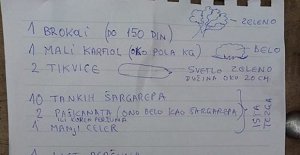 1 BROKOLI (DO 150 DIN) ZELENO
1 MALI KARFIOL (OKO POLA KG) BELO
2 TIKVICE SVETLO ZELENO
DUŽINA OKO 20 CM.
10 TANKIH ŠARGAREPA
2 PAŠKANATA (ONO BELO KAO ŠARGAREPA)
ILI KOREN PERŠUNA
1 MANJI CELER
ISTA
TEZGA
1